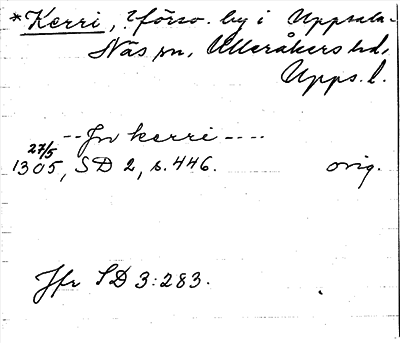 *Kerri, ?förso. by i Uppsala-
Näs sn, Ulleråkers hd,
Upps. l.
-- Jn kerri ----
27/5
1305, SD 2, s. 446. orig.
Jfr SD 3:283.